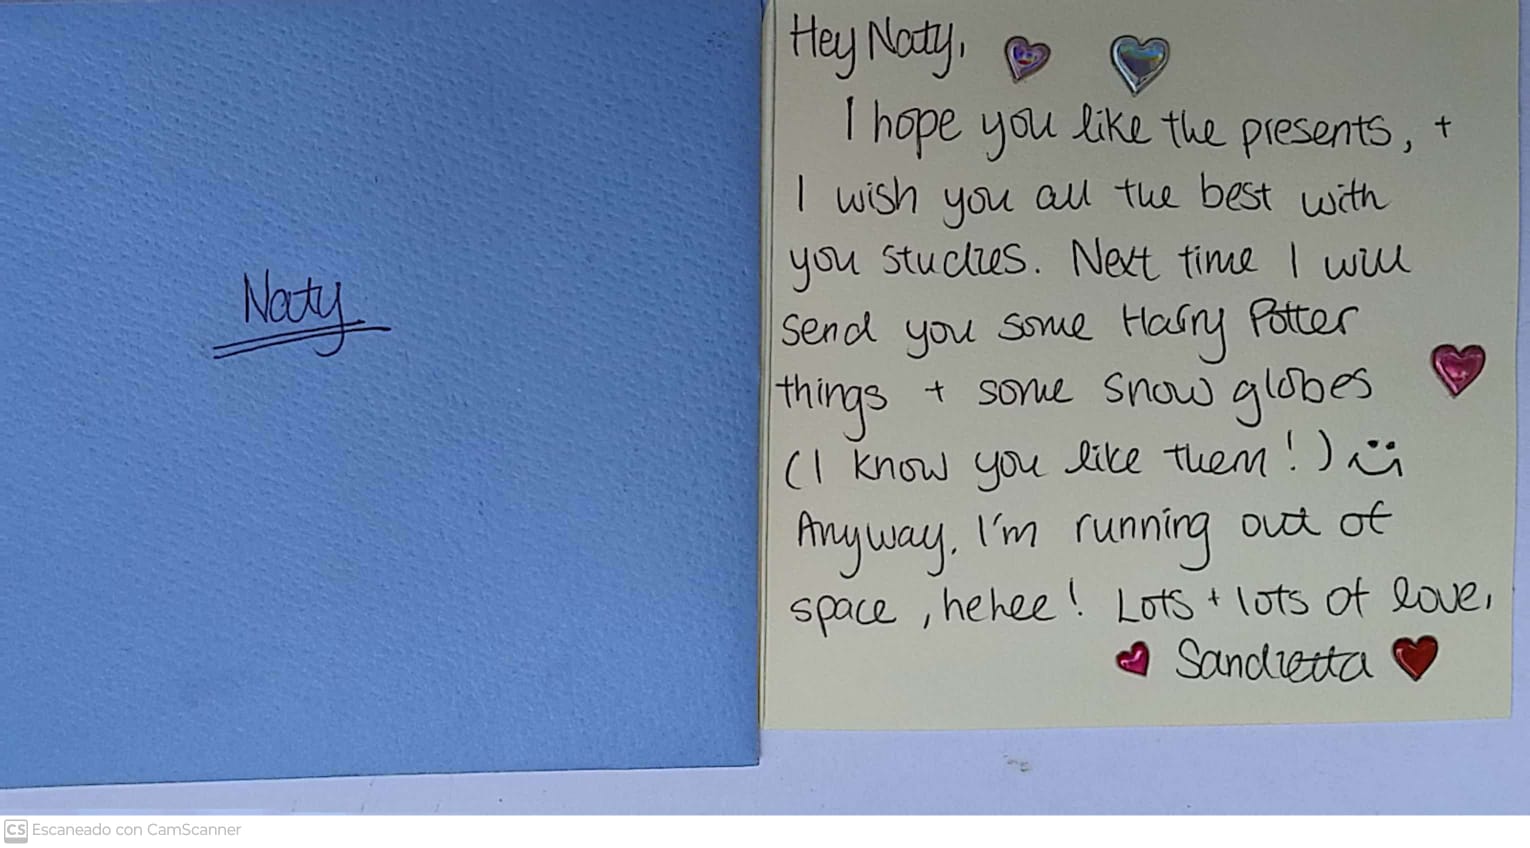 Naty
Hey Naty,
I hope you like the presents, +
I wish you all the best with
you studies. Next time I will
send you some Harry Potter
things + some snow globes
(I know you like them!) :)
Anyway, I'm running out of
space, hehee! Lots + lots of love,
Sandretta
CS Escaneado con CamScanner